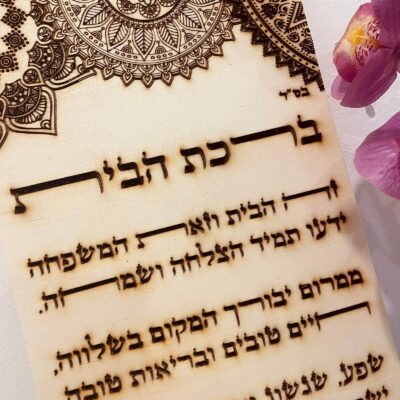 בס"ד
ברכת הבית
זה הבית וזאת המשפחה
ידעו תמיד הצלחה ושמחה.
ממרום יבורך המקום בשלווה.
חיים טובים ובריאות טובה
שפע, ששון